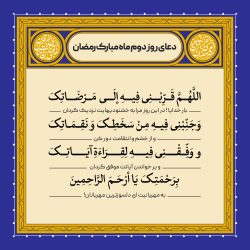 دعای روز دوم ماه مبارک رمضان
اللَّهُمَّ قَرِّبْنِی فِیهِ إِلَی مَرْضَاتِکَ
بار خدایا! در این روز مرا به خشنودیهایت نزدیک گردان
وَجَنِّبْنِی فِیهِ مِنْ سَخَطِکَ وَ نَقِمَاتِکَ
و از خشم و انتقامت دور کن
وَ وَفِّقْنِی فِیهِ لِقِرَاءَةِ آیَاتِکَ
و بر خواندن آیاتت موفق گردان
بِرَحْمَتِکَ یَا أَرْحَمَ الرَّاحِمِینَ
به مهربانیت ای دلسوزترین مهربانان!